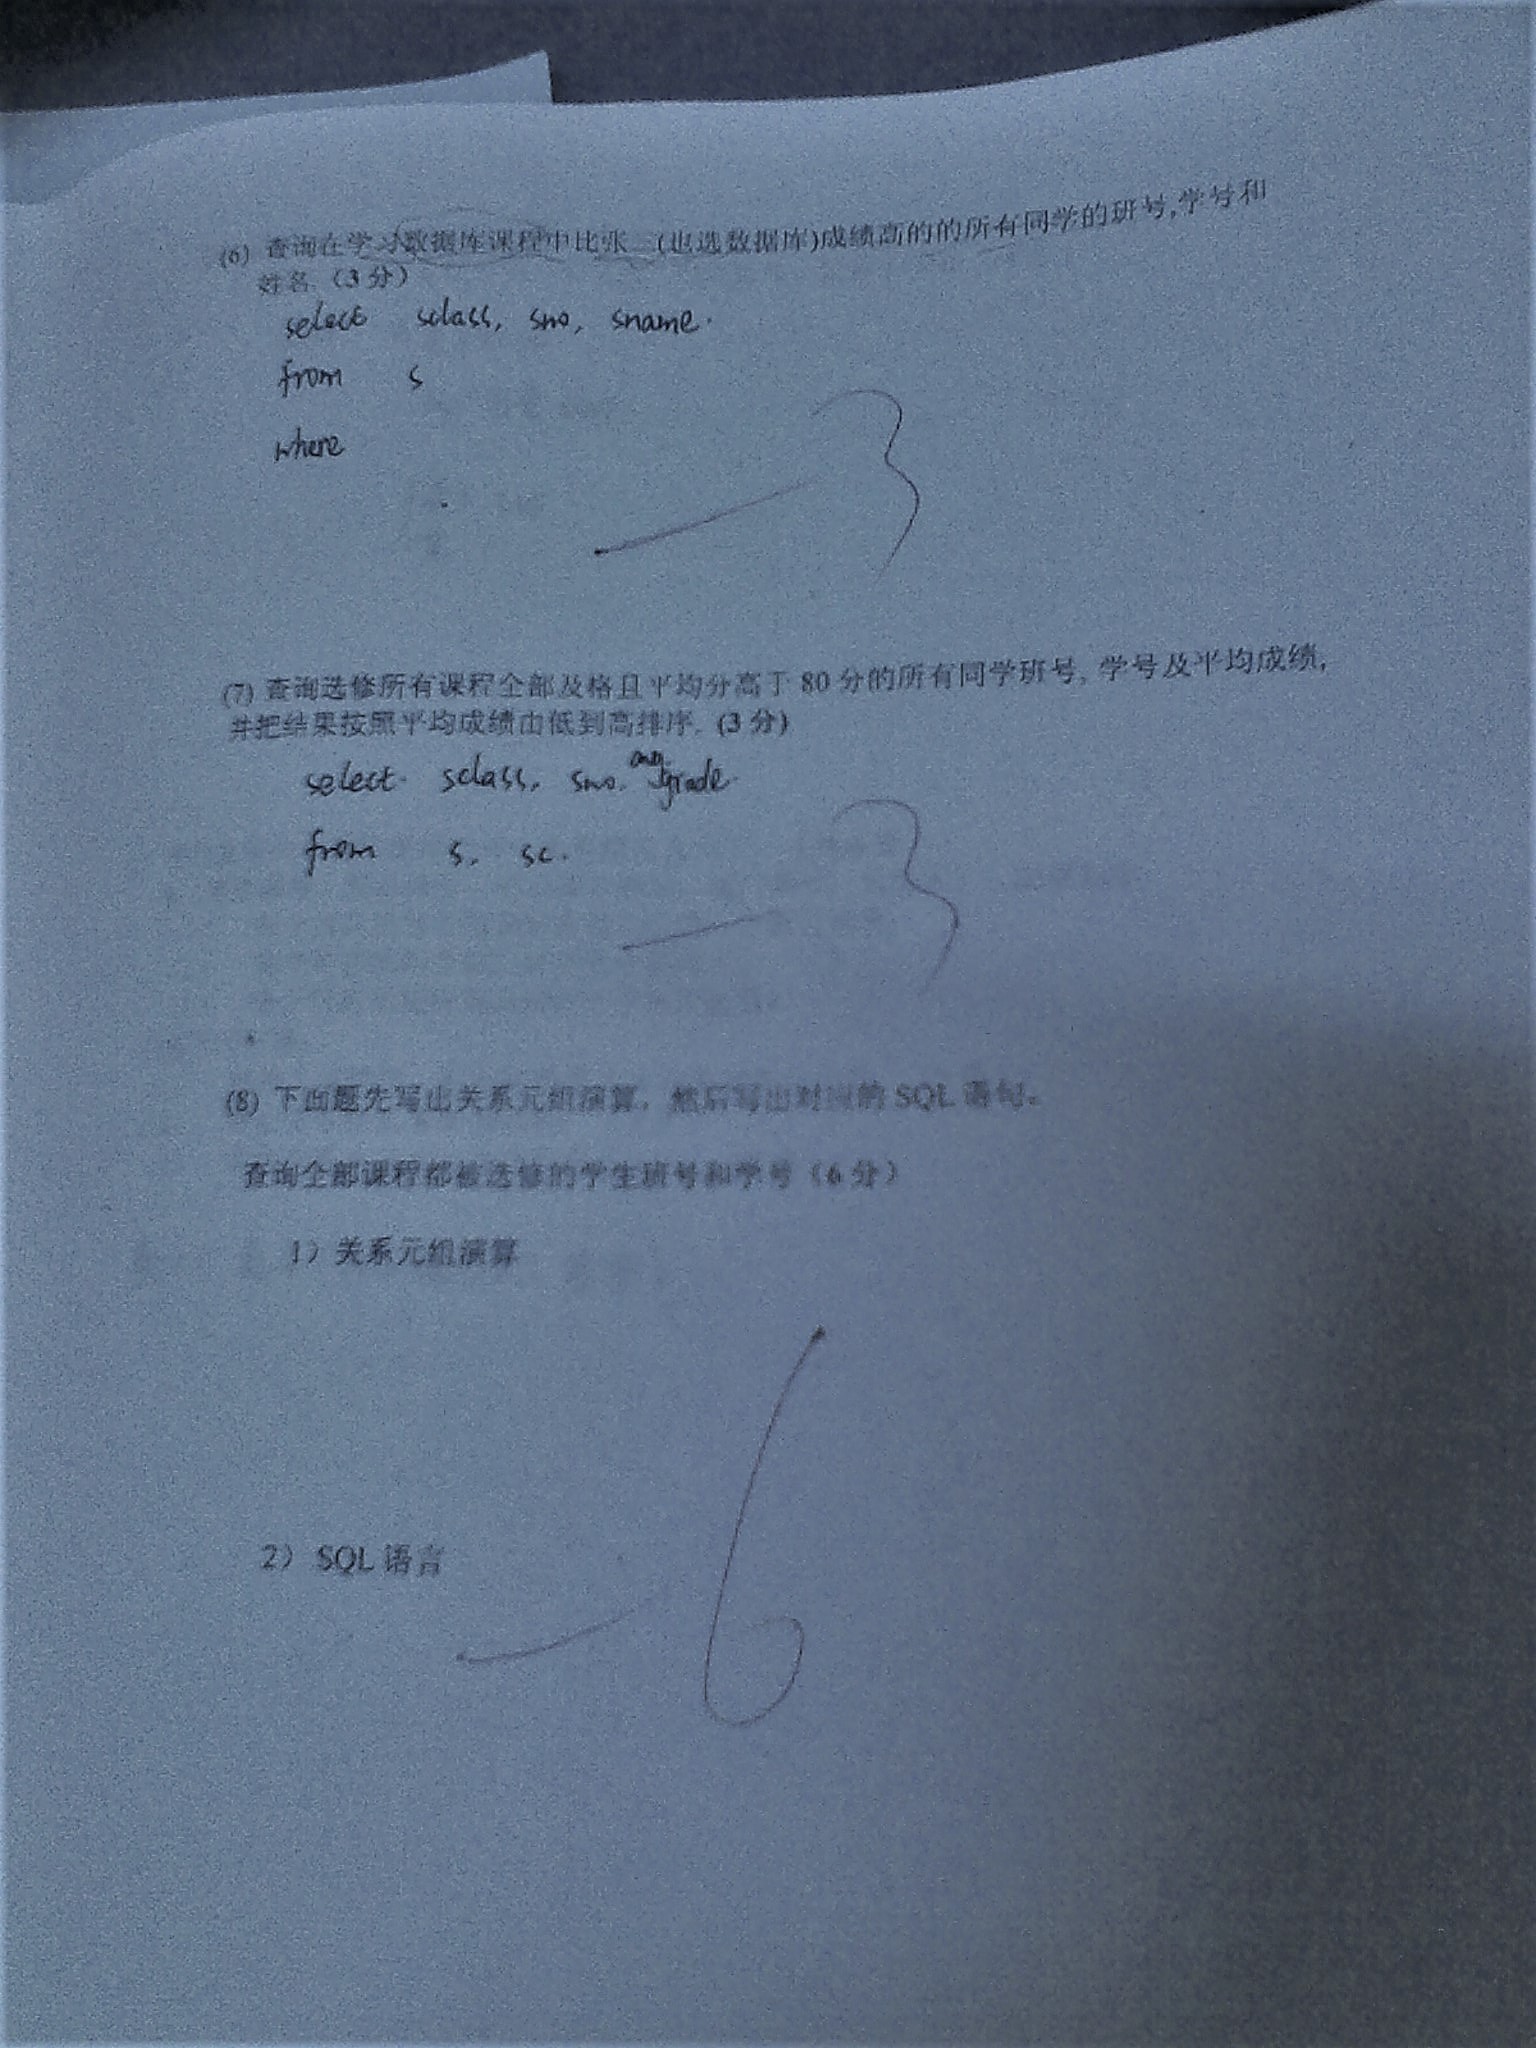 (6) 查询在学习数据库课程中比张 (也选数据库)成绩高的的所有同学的班号,学号和
姓名.(3分)
select sclass, sno, sname.
from s
where
—3
(7) 查询选修所有课程全部及格且平均分高于80分的所有同学班号, 学号及平均成绩,
并把结果按照平均成绩由低到高排序. (3分)
select. sclass, sno, avg.grade.
from s, sc.
—3
(8) 下面题先写出关系元组演算，然后写出对应的SQL语句。
查询全部课程都被选修的学生班号和学号（6分）
1）关系元组演算
2） SQL语言
—6